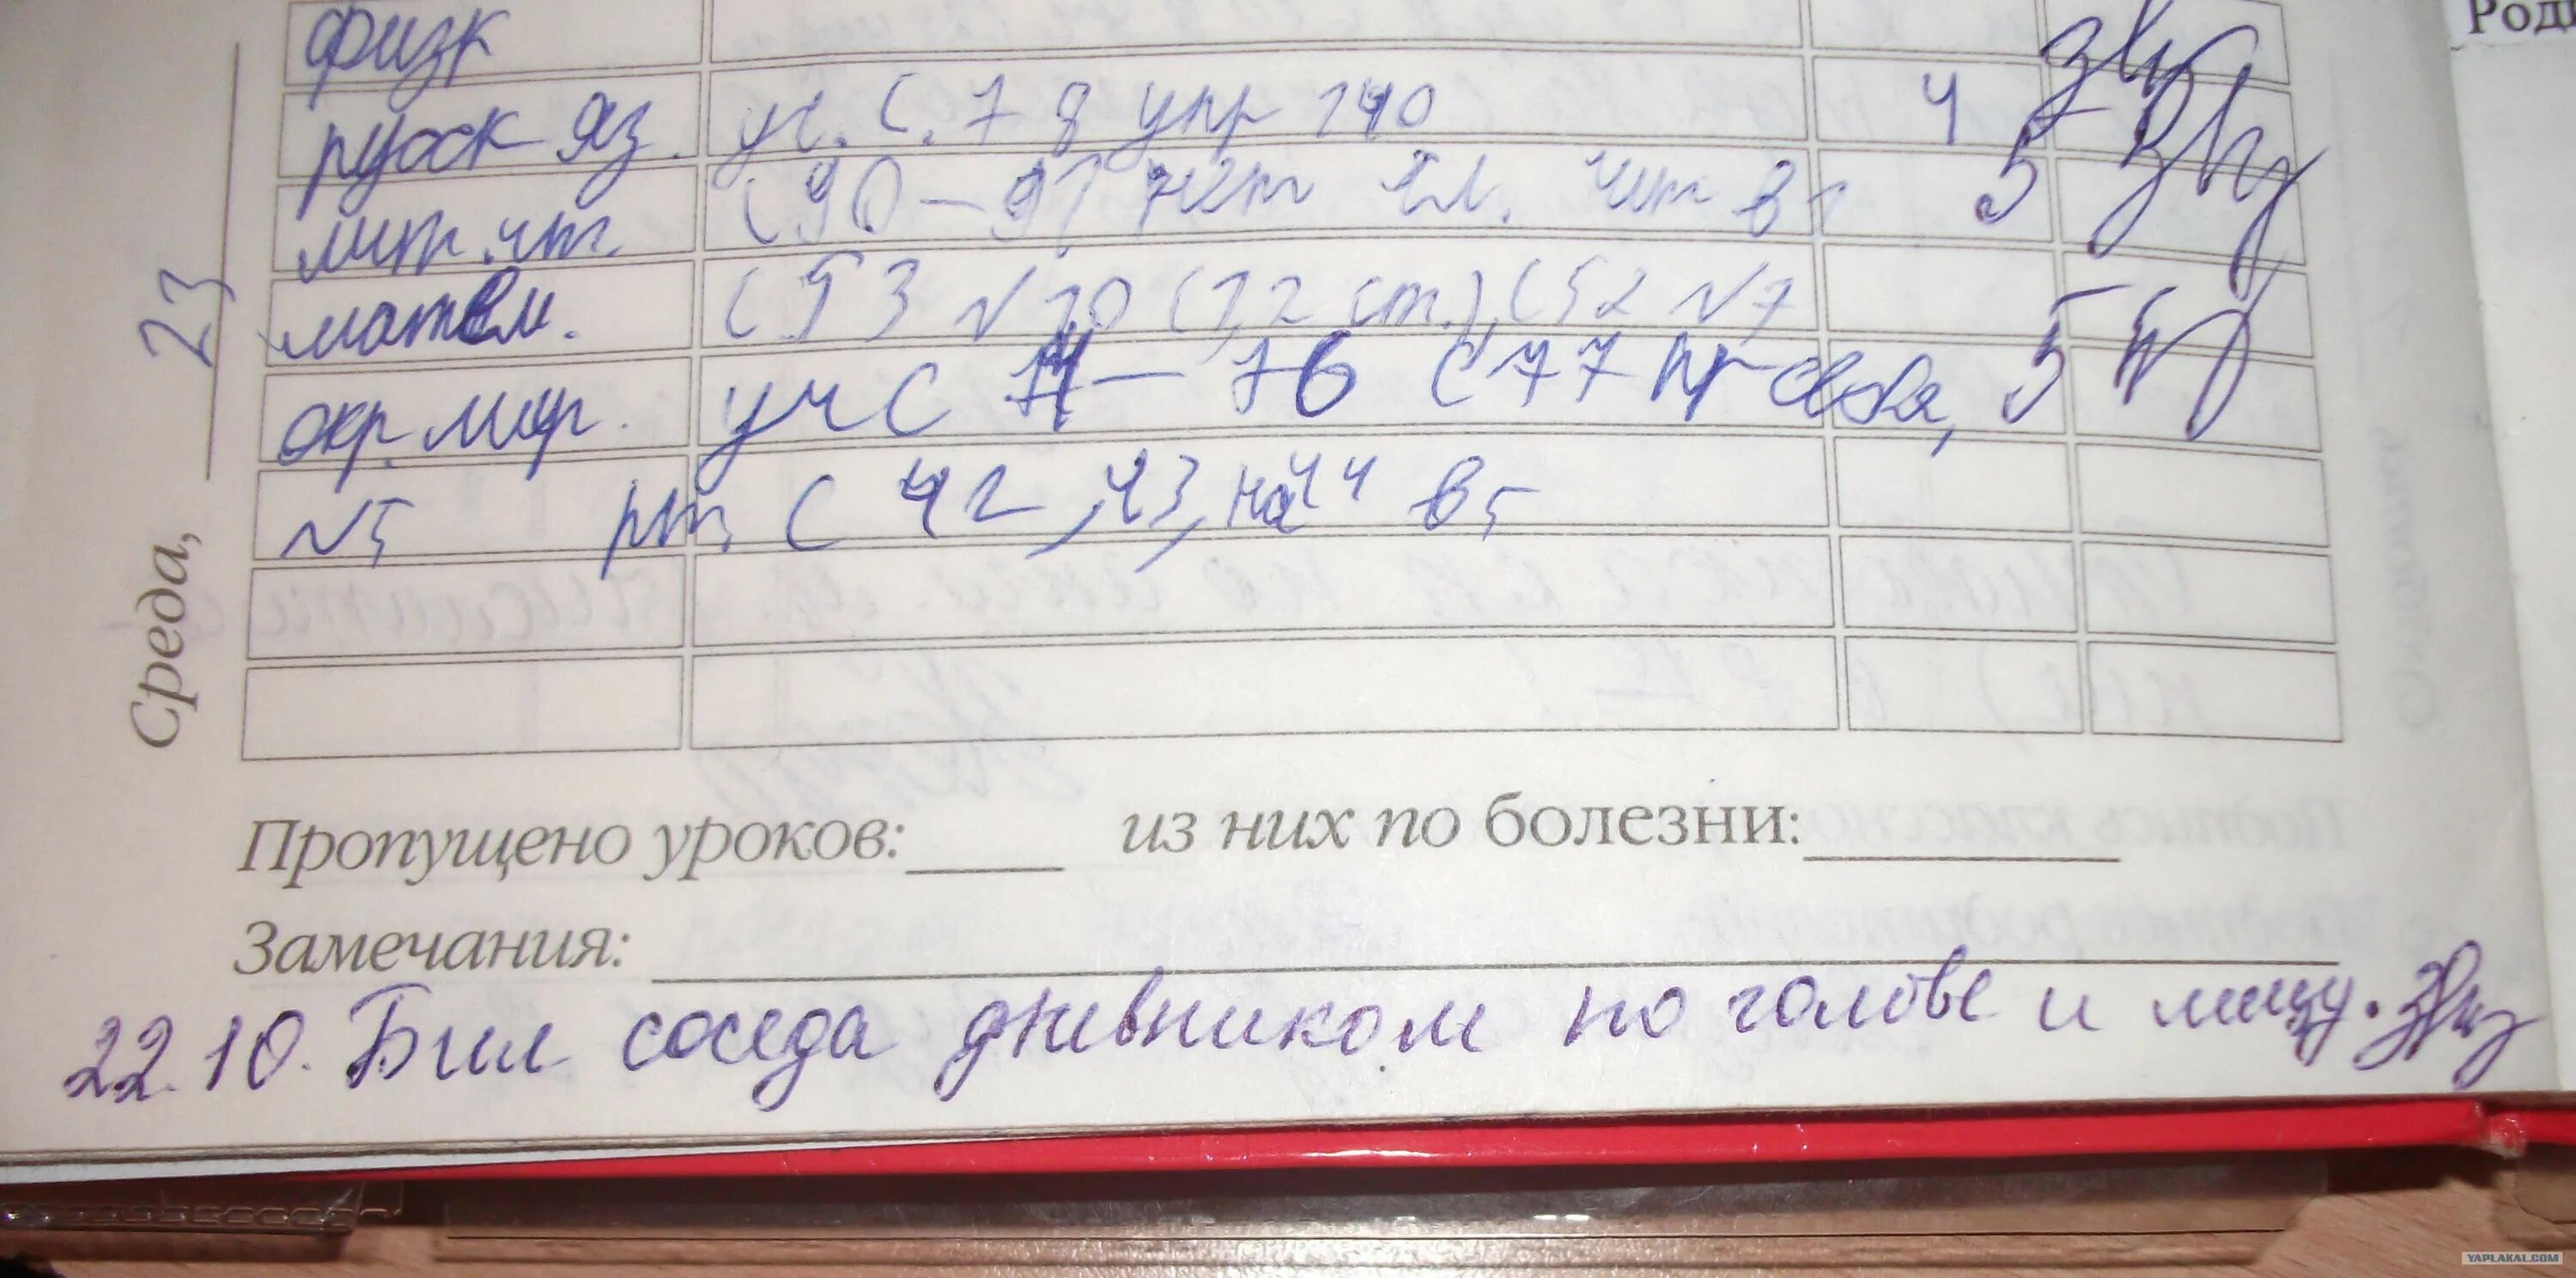 Роди
физк
русск яз. уч. с. 78 упр 140 4
лит. чт. с 90-91 чит вн. чит в 1 5
Среда, 23
матем. с 53 №10 (1,2 ст.), с 52 №7
окр. мир. уч с 74-76 с 77 пр себя, 5
№5 рт. с 42, 43, на 44 в 5
Пропущено уроков: из них по болезни:
Замечания:
22.10. Бил соседа дневником по голове и лицу.
YAPLAKAL.COM